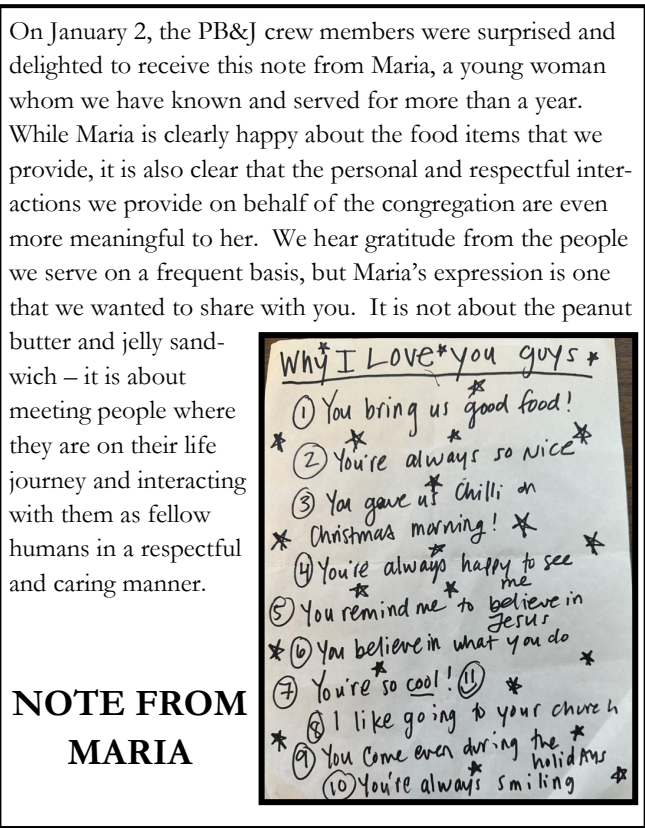 On January 2, the PB&J crew members were surprised and
delighted to receive this note from Maria, a young woman
whom we have known and served for more than a year.
While Maria is clearly happy about the food items that we
provide, it is also clear that the personal and respectful inter-
actions we provide on behalf of the congregation are even
more meaningful to her.  We hear gratitude from the people
we serve on a frequent basis, but Maria's expression is one
that we wanted to share with you.  It is not about the peanut
butter and jelly sand-
wich – it is about
meeting people where
they are on their life
journey and interacting
with them as fellow
humans in a respectful
and caring manner.
NOTE FROM
MARIA
Why I Love you guys
① You bring us good food!
② You're always so nice
③ You gave us Chilli on
Christmas morning!
④ You're always happy to see
me
⑤ You remind me to believe in
Jesus
⑥ You believe in what you do
⑦ You're so cool! ⑪
⑧ I like going to your church
⑨ You come even during the
holidays
⑩ You're always smiling